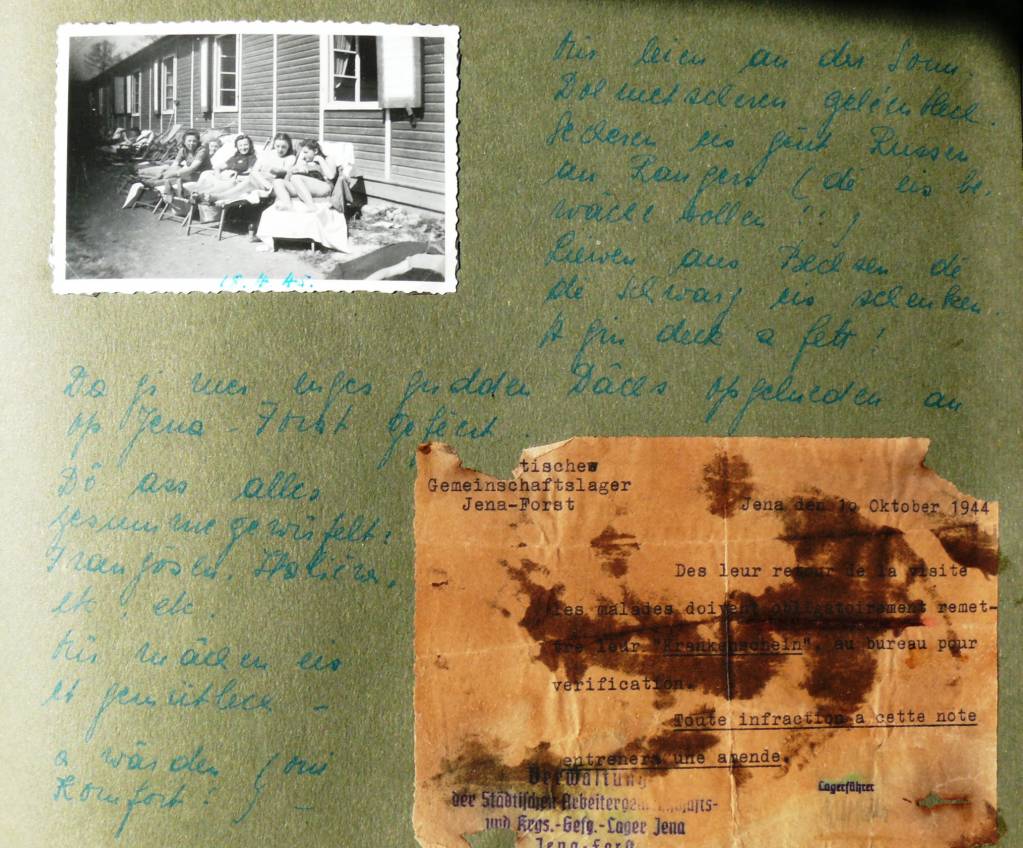 Mir leien an der Sonn.
Dolmetscheren geléintlech.
Scheren eis gint Russen
an Rangers (déi eis be-
wache sollen!!)
Liewen aus Bechsen déi
déi Schwarz eis schenken.
A gin deck a fett!
Da gi mer enges gudden Daes opgelueden an
op Jena-Forst gefeert.
Do ass alles
zesummegewürfelt:
Franzosen, Italiéner,
etc, etc.
Mir machen eis
et gemütlech –
a wärden (oni
Komfort!) –
18.4.45.
tisches
Gemeinschaftslager
Jena-Forst
Jena den 10 Oktober 1944
Des leur retour de la visite
les malades doivent obligatoirement remet-
tre leur "Krankenschein", au bureau pour
verification.
Toute infraction a cette note
entrenera une amende.
Verwaltung
der Städtischen Arbeitergemeinschafts-
und Krgs.-Gefg.-Lager Jena
Jena-Forst
Lagerführer